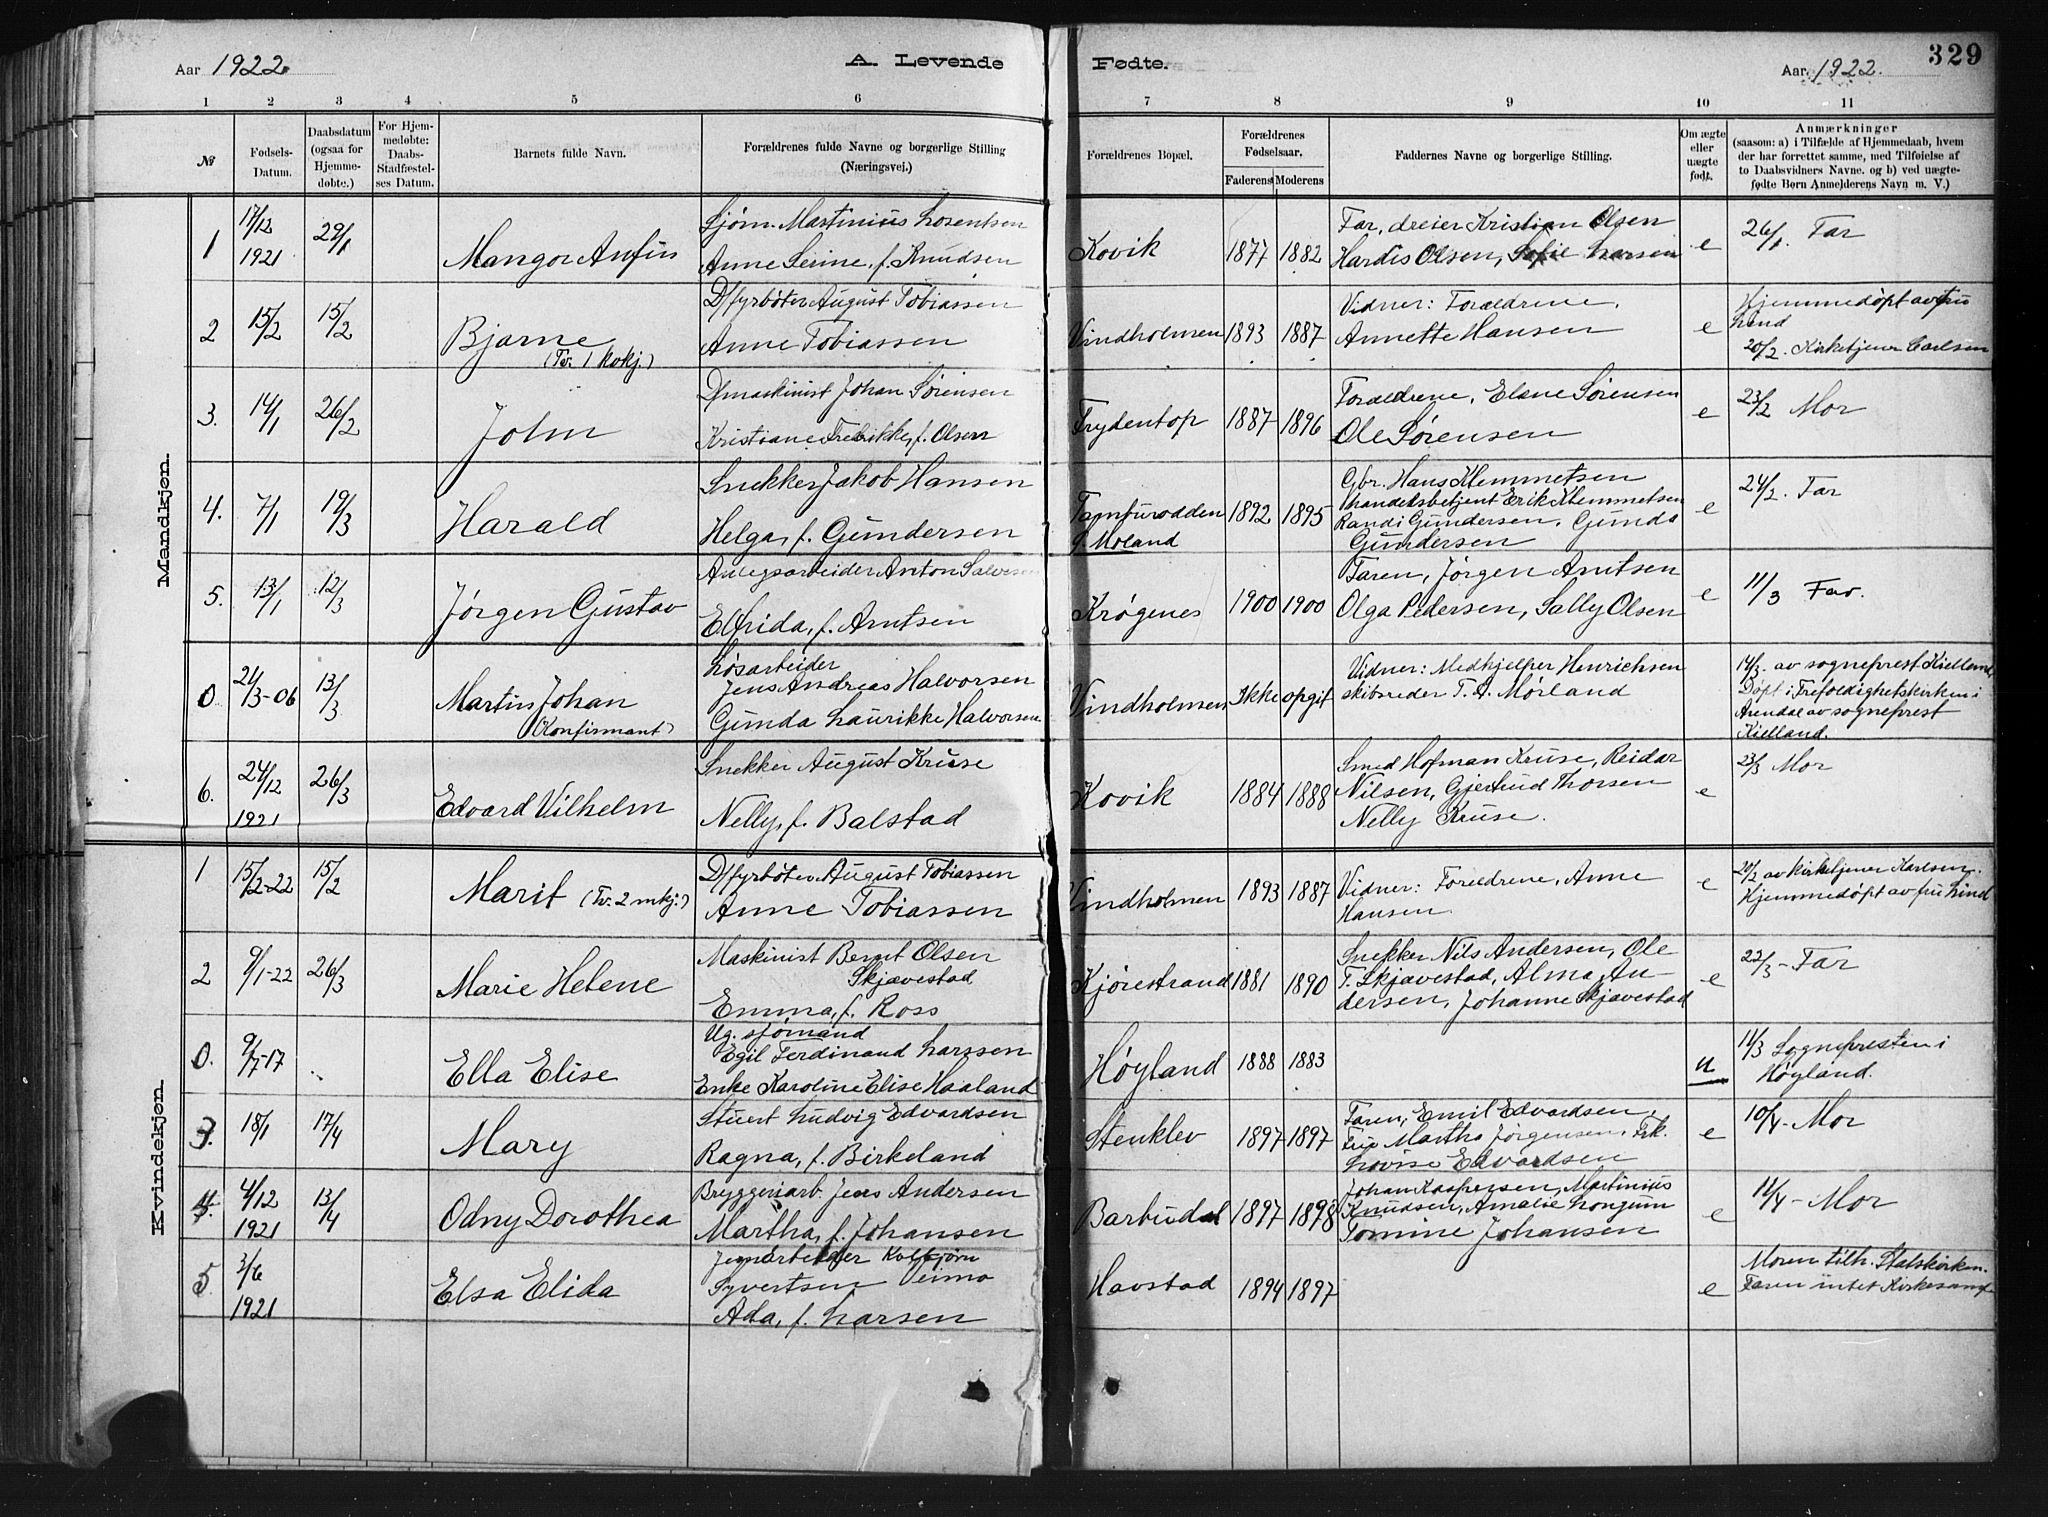 Aar 1922.
A. Levende
Fødte.
Aar 1922.
329
1 2 3 4 5 6 7 8 9 10 11
№
Fødsels-
Datum.
Daabsdatum
(ogsaa for
Hjemme-
døbte.)
For Hjem-
medøbte:
Daabs-
Stadfæstel-
ses Datum.
Barnets fulde Navn.
Forældrenes fulde Navne og borgerlige Stilling
(Næringsvei.)
Forældrenes Bopæl.
Forældrenes
Fødselsaar.
Faderens Moderens
Faddernes Navne og borgerlige Stilling.
Om ægte
eller
uægte
født.
Anmærkninger
(saasom: a) i Tilfælde af Hjemmedaab, hvem
der har forrettet samme, med Tilføielse af
to Daabsvidners Navne. og b) ved uægte-
fødte Børn Anmelderens Navn m. V.)
Mandkjøn.
1 17/12 1921 29/1 Mangor Anfin
Sjøm. Martinius Lorentsen
Anne Serine, f. Knudsen
Kovik 1877 1882
Far, dreier Kristian Olsen
Hardis Olsen, Sofie Larsen
e 26/1. Far
2 15/2 15/2 Bjarne
(Tv. 1 kvkj.)
D/fyrbøter August Tobiassen
Anne Tobiassen
Vindholmen 1893 1887
Vidner: Forældrene.
Annette Hansen
e Hjemmedøpt av fru
Lind
20/2. Kirketjener Carlsen
3. 14/1 26/2 John
D/maskinist Johan Sørensen
Kristiane Fredrikke, f. Olsen
Frydentop 1887 1896
Forældrene, Elene Sørensen
Ole Sørensen
e 23/2 Mor
4. 7/1 19/3 Harald
Snekker Jakob Hansen
Helga, f. Gundersen
Ø. Moland 1892 1895
Gbr. Hans Klemmetsen
handelsbetjent Erik Klemmetsen
Randi Gundersen, Gunda
Gundersen
e 24/2. Far
5. 13/1 12/3 Jørgen Gustav
Anlegsarbeider Anton Salvesen
Elfrida, f. Arntsen
Krøgenes 1900 1900
Faren, Jørgen Arntsen
Olga Pedersen, Sally Olsen
e 11/3 Far.
0 21/3-06 13/3 Martin Johan
(Konfirmant)
Løsarbeider
Jens Andreas Halvorsen
Gunda Laurikke Halvorsen
Vindholmen Ikke opgit
Vidner: Medhjelper Henrichsen
skibsreder T. A. Mørland
14/3. av sogneprest Kielland
Døpt i Trefoldighetskirken i
Arendal av sogneprest
Kielland.
6. 24/12 1921 26/3 Edvard Vilhelm
Snekker August Kruse
Nelly, f. Balstad
Kovik 1884 1888
Smed Hofman Kruse, Reidar
Nilsen, Gjertrud Thorsen
Nelly Kruse.
e 23/3 Mor
Kvindekjøn.
1 15/2-22 15/2 Marit (Tv. 2 mkj.)
D/fyrbøter August Tobiassen
Anne Tobiassen
Vindholmen 1893 1887
Vidner: Forældrene, Anne
Hansen
e 20/2 av kirketjener Karlsen.
Hjemmedøpt av fru Lind
2 9/1-22 26/3 Marie Helene
Maskinist Bernt Olsen
Skjævestad
Emma, f. Ross
Kjørestrand 1881 1890
Snekker Nils Andersen, Ole
T. Skjævestad, Alma An-
dersen, Johanne Skjævestad
e 22/3-Far
0. 9/7-17 Ella Elise
Ug. sjømand
Egil Ferdinand Larssen
Enke Karoline Elise Haaland
Høyland 1888 1883
u 11/3 Sognepresten i
Høyland.
3. 18/1 17/4 Mary
Stuert Ludvig Edvardsen
Ragna, f. Birkeland
Stenklev 1897 1897
Faren, Emil Edvardsen,
Fru Martha Jørgensen, Frk.
Lovise Edvardsen
e 10/4-Mor
4. 4/12 1921 13/4 Odny Dorothea
Bryggeriarb. Jens Andersen
Martha, f. Johansen
Barbudal 1897 1898
Johan Kaspersen, Martinius
Knudsen, Amalie Longum
Tomine Johansen
e 11/4-Mor
5 3/6 1921 Elsa Elida
Jernarbeider Kolbjørn
Syvertsen
Ada, f. Larsen
Havstad 1894 1897
e Moren tilh. Statskirken.
Faren intet Kirkesamf.